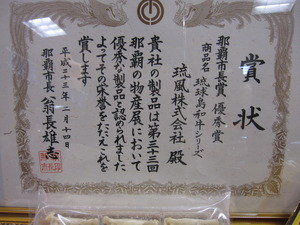 賞状
那覇市長賞 優秀賞
商品名 琉球島和牛シリーズ
琉風株式会社 殿
貴社の製品は第三十三回
那覇の物産展において
優秀な製品と認められました
よってその栄誉をたたえこれを
賞します
平成二十三年二月十四日
那覇市長 翁長雄志